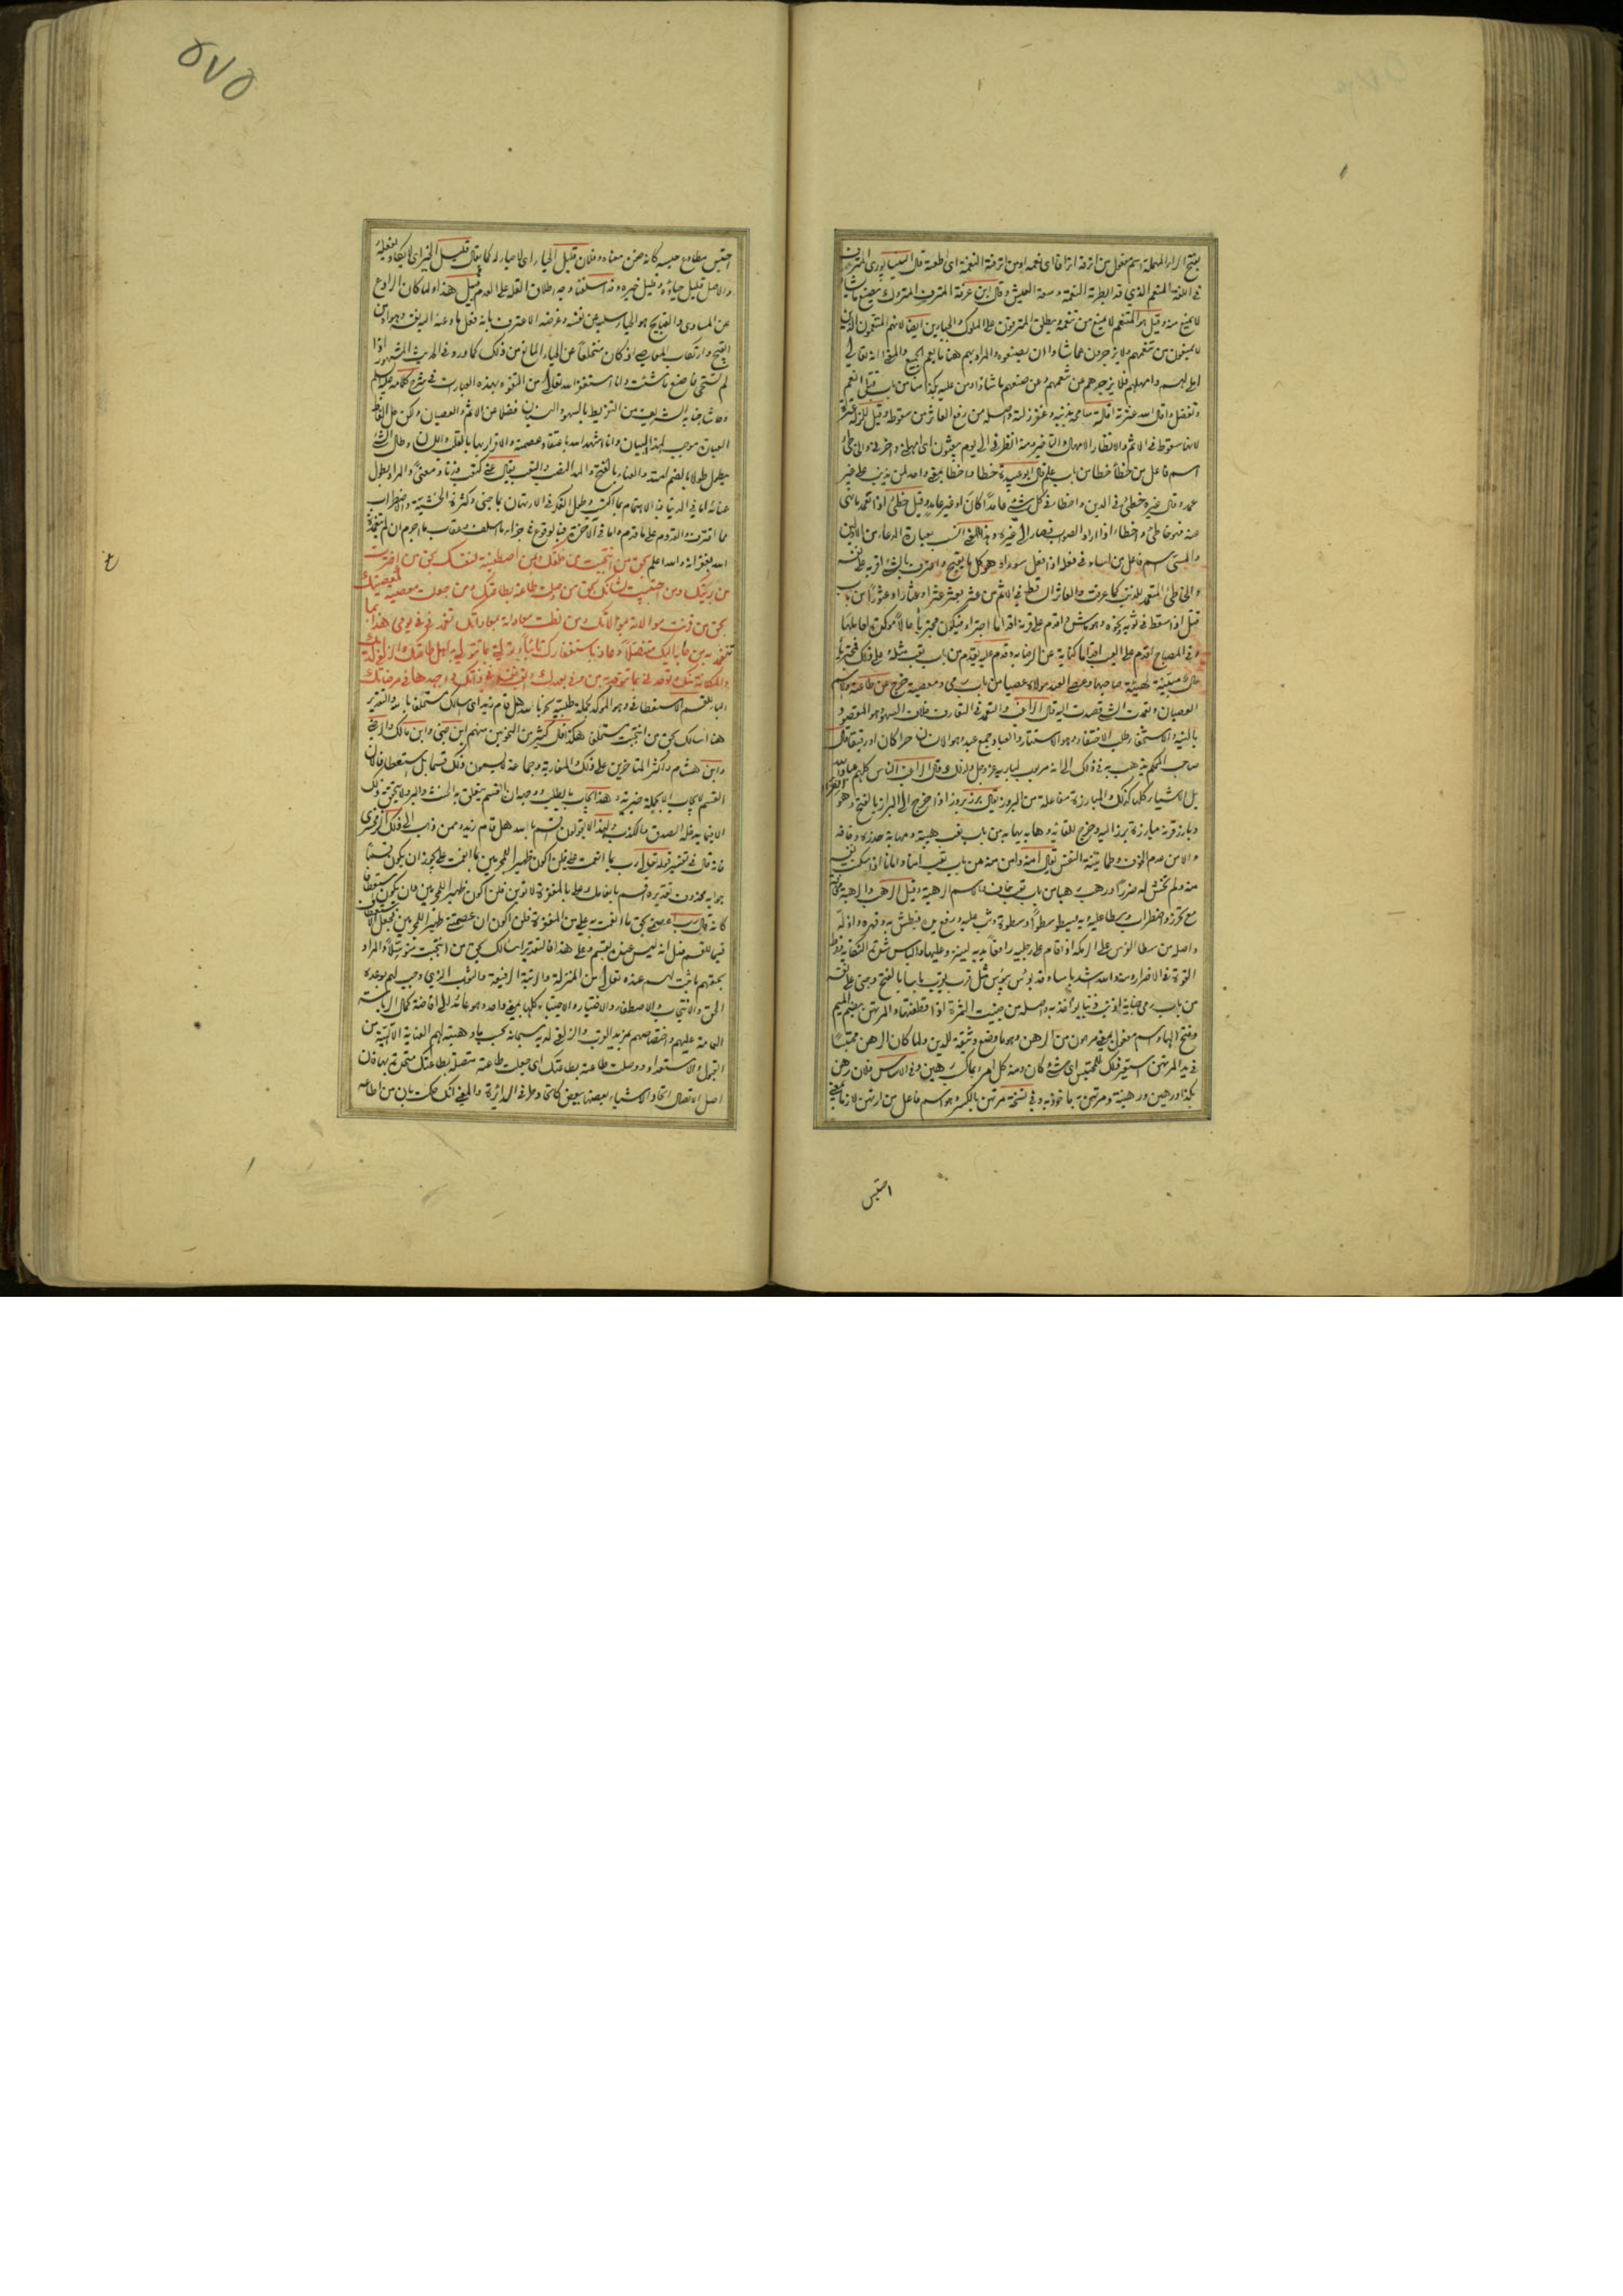 بفتح الراء المهملة اسم مفعول من اترفه اترافا اى نعمه او من اترفته النعمة اى اطغته قال النيسابورى المترف
فى اللغة المنعم الذي قد ابطرته النعمة وسعة العيش وقال ابن عرفة المترف المتروك يصنع ما يشاء
لا يمنع منه وقيل هو المتنعم لا يمنع من تنعمه ويطلق المترفون على الملوك والجبارين ايضا لانهم المتنعمون الذين
لا يمنعون من تنعمهم ولا يزجرون عما شاؤا ان يصنعوه والمراد بهم هنا ما يعم الجميع والمعنى انه تعالى
وتفضل واقال الله عثرته اقالة سامحه بذنبه وغفر زلته واصله من رفع العاثر من سقوطه وقيل للزلة عثرة
لانها سقوط فى الاثم والانظار الامهال والتاخير ومنه انظرنى الى يوم يبعثون اى امهلنى واخرنى والخاطئ
اسم فاعل من خطأ خطا من باب علم قال ابو عبيدة خطا واخطا بمعنى واحد لمن يذنب على غير
عمد وقال غيره خطئ فى الدين واخطا فى كل شئ عامدا كان او غير عامد وقيل خطئ اذا تعمد ما نهى
عنه فهو خاطئ واخطاء اذا اراد الصواب فصار الى غيره وهذا المعنى انسب بعبارة الدعاء من الاولين
والمسئ اسم فاعل من اساء فى فعله اذا فعل سوءا وهو كل ما يقبح واعترف بالشئ اقر به على نفسه
والخاطئ المتعمد للذنب كما عرفت والعاثر الساقط فى الاثم من عثر يعثر عثرا وعثارا وعثورا من باب
قتل اذا سقط فى ثوبه ونحوه وهو ماش واقدم على قرنه اقداما اجترا
وفى المصباح اقدم على العيب اقداما كناية عن الرضا به وقدم عليه يقدم من باب تعب مثله
العصيان وتعمدت الشئ قصدت اليه قال الراغب والتعمد فى التعارف خلاف السهو وهو المقصود
بالنية والاستخفاء طلب الاختفاء وهو الاستتار والعباد جمع عبد وهو الانسان حرا كان او رقيقا قال
صاحب المحكم يذهب به فى ذلك الى انه مربوب لباريه عز وجل ولذلك قال الراغب الناس كلهم عباد الله
بل الاشياء كلها كذلك والمبارزة مفاعلة من البروز يقال برز بروزا اذا خرج الى البراز بالفتح وهو الفضاء
وبارز قرنه مبارزة برز اليه وخرج للقائه وهابه يهابه من باب تعب هيبة ومهابة حذره وخافه
والامن عدم الخوف وطمانينة النفس يقال امنه وامن منه من باب تعب امنا وامانا اذا سكنت نفسه
منه ولم تخش له ضررا ورهب رهبا من باب تعب خاف والاسم الرهبة وقيل الرهب والرهبة مخافة
مع تحرز واضطراب وسطا عليه وبه يسطو سطوا وسطوة وثب عليه ورفع يده فبطش به وقهره واذله
القوة فى الاضرار ومنه والله اشد باسا وقد بؤس يبؤس مثل قرب يقرب باسا بالفتح وجنى على نفسه
من باب رمى جناية اذنب ذنبا يؤاخذ به واصله من جنيت الثمرة اذا اقتطفتها والمرتهن بضم الميم
وفتح الهاء اسم مفعول بمعنى مرهون من الرهن وهو ما وضع وثيقة للدين ولما كان الرهن محتبسا
فى يد المرتهن استعير ذلك للمحتبس اى شئ كان ومنه كل امرئ بما كسب رهين وفى الاساس فلان رهن
بكذا ورهين ورهينة ومرتهن به ماخوذ به وفى نسخة مرتهن بالكسر وهو اسم فاعل من ارتهن لازما بمعنى
احتبس
۵۷۵
احتبس مطاوع حبسه كانه ضمن معناه وفلان قليل الحياء اى لا حياء له كما يقال قليل الخير اى لا يكاد يفعله
والاصل قليل حياؤه وقليل خيره وقد اسلفنا وجه اطلاق القلة على العدم قبيل هذا ولما كان الرادع
عن المساوى والقبايح هو الحياء سلبه عن نفسه وغرضه الاعتراف بانه فعل ما دعته اليه نفسه وهواه من
القبيح وارتكاب المعاصى اذ كان متخلفا عن الحياء المانع من ذلك كما ورد فى الحديث المشهور اذا
لم تستحى فاصنع ما شئت وانا استغفر الله تعالى من التفوه بهذه العبارت فى شرح كلامه عليه السلم
وحاشا جنابه الشريف من التفريط بالسهو والنسيان فضلا عن الاثم والعصيان ولكن حل الفاظ
العبارة موجب لهذا البيان وانا اشهد الله باعتقاد عصمته والاقرار بها بالقلب واللسان وطال الشئ
يطول طولا بالضم امتد والعناء بالفتح والمد النصب والتعب يقال عنى كتعب وزنا ومعنى والمراد بطول
عنائه اما فى الدنيا فبالاهتمام بما اكتسب وطول الفكر فى الارتهان بما جنى وكثرة الخشية والاضطراب
مما اقترف والقدوم على ما قدم واما فى الآخرة فبالوقوع فى جزاء ما اسلف وعقاب ما اجرم ان لم يتغمده
الله بغفرانه والله اعلم بحق من انتجبت من خلقك وبمن اصطفيته لنفسك بحق من اخترت
من بريتك ومن اجتبيت لشانك بحق من وصلت طاعته بطاعتك ومن جعلت معصيته كمعصيتك
بحق من قرنت موالاته بموالاتك ومن نطت معاداته بمعاداتك تغمدنى فى يومى هذا بما
تتغمد به من جار اليك متنصلا وعاذ باستغفارك تائبا وتولنى بما تتولى به اهل طاعتك والزلفى لديك
والمكانة منك وتوحدنى بما تتوحد به من وفى بعهدك واتعب نفسه فى ذاتك واجهدها فى مرضاتك
الباء للقسم الاستعطافى وهو المؤكد لجملة طلبية نحو بالله هل قام زيد اى اسالك مستحلفا بالله والتقدير
هنا اسالك بحق من انتجبت مستحلفا هكذا قال كثير من النحويين منهم ابن جنى وابن مالك والرضى
وابن هشام واكثر المتاخرين على ذلك والمغاربة وجماعة لا يسمون ذلك قسما بل استعطافا
القسم لا يجاب الا بجملة خبرية وهذا يجاب بالطلب
الا فيما يدخله الصدق والكذب ولهذا لا يقولون قسم بالله هل قام زيد وممن ذهب الى ذلك الزمخشرى
فانه قال فى تفسير قوله تعالى رب بما انعمت على فلن اكون ظهيرا للمجرمين بما انعمت على يجوز ان يكون قسما
جوابه محذوف تقديره اقسم بانعامك على بالمغفرة لاتوبن فلن اكون ظهيرا للمجرمين وان يكون استعطافا
كانه قال رب اعصمنى بحق ما انعمت به على من المغفرة فلن اكون ان عصمتنى ظهيرا للمجرمين فجعل الاستعطاف
قسيما للقسم
بحقهم ما ثبت لهم عنده تعالى من المنزلة والرتبة الرفيعة والثواب الذي وجب لهم بوعده
الحق والانتجاب والاصطفاء والاختيار والاجتباء كلها بمعنى واحد وهو عائد الى افاضة كمال الرياسة
العامة عليهم واختصاصهم بمزيد القرب والزلفى لديه سبحانه بحسب ما وهبته لهم العناية الالهية من
القبول والاستعداد ووصلت طاعته بطاعتك اى جعلت طاعته متصلة بطاعتك متحدة بها فان
اصل الاتصال اتحاد الاشياء بعضها ببعض كاتحاد طرفى الدائرة والمعنى انك حكمت بان من اطاعه